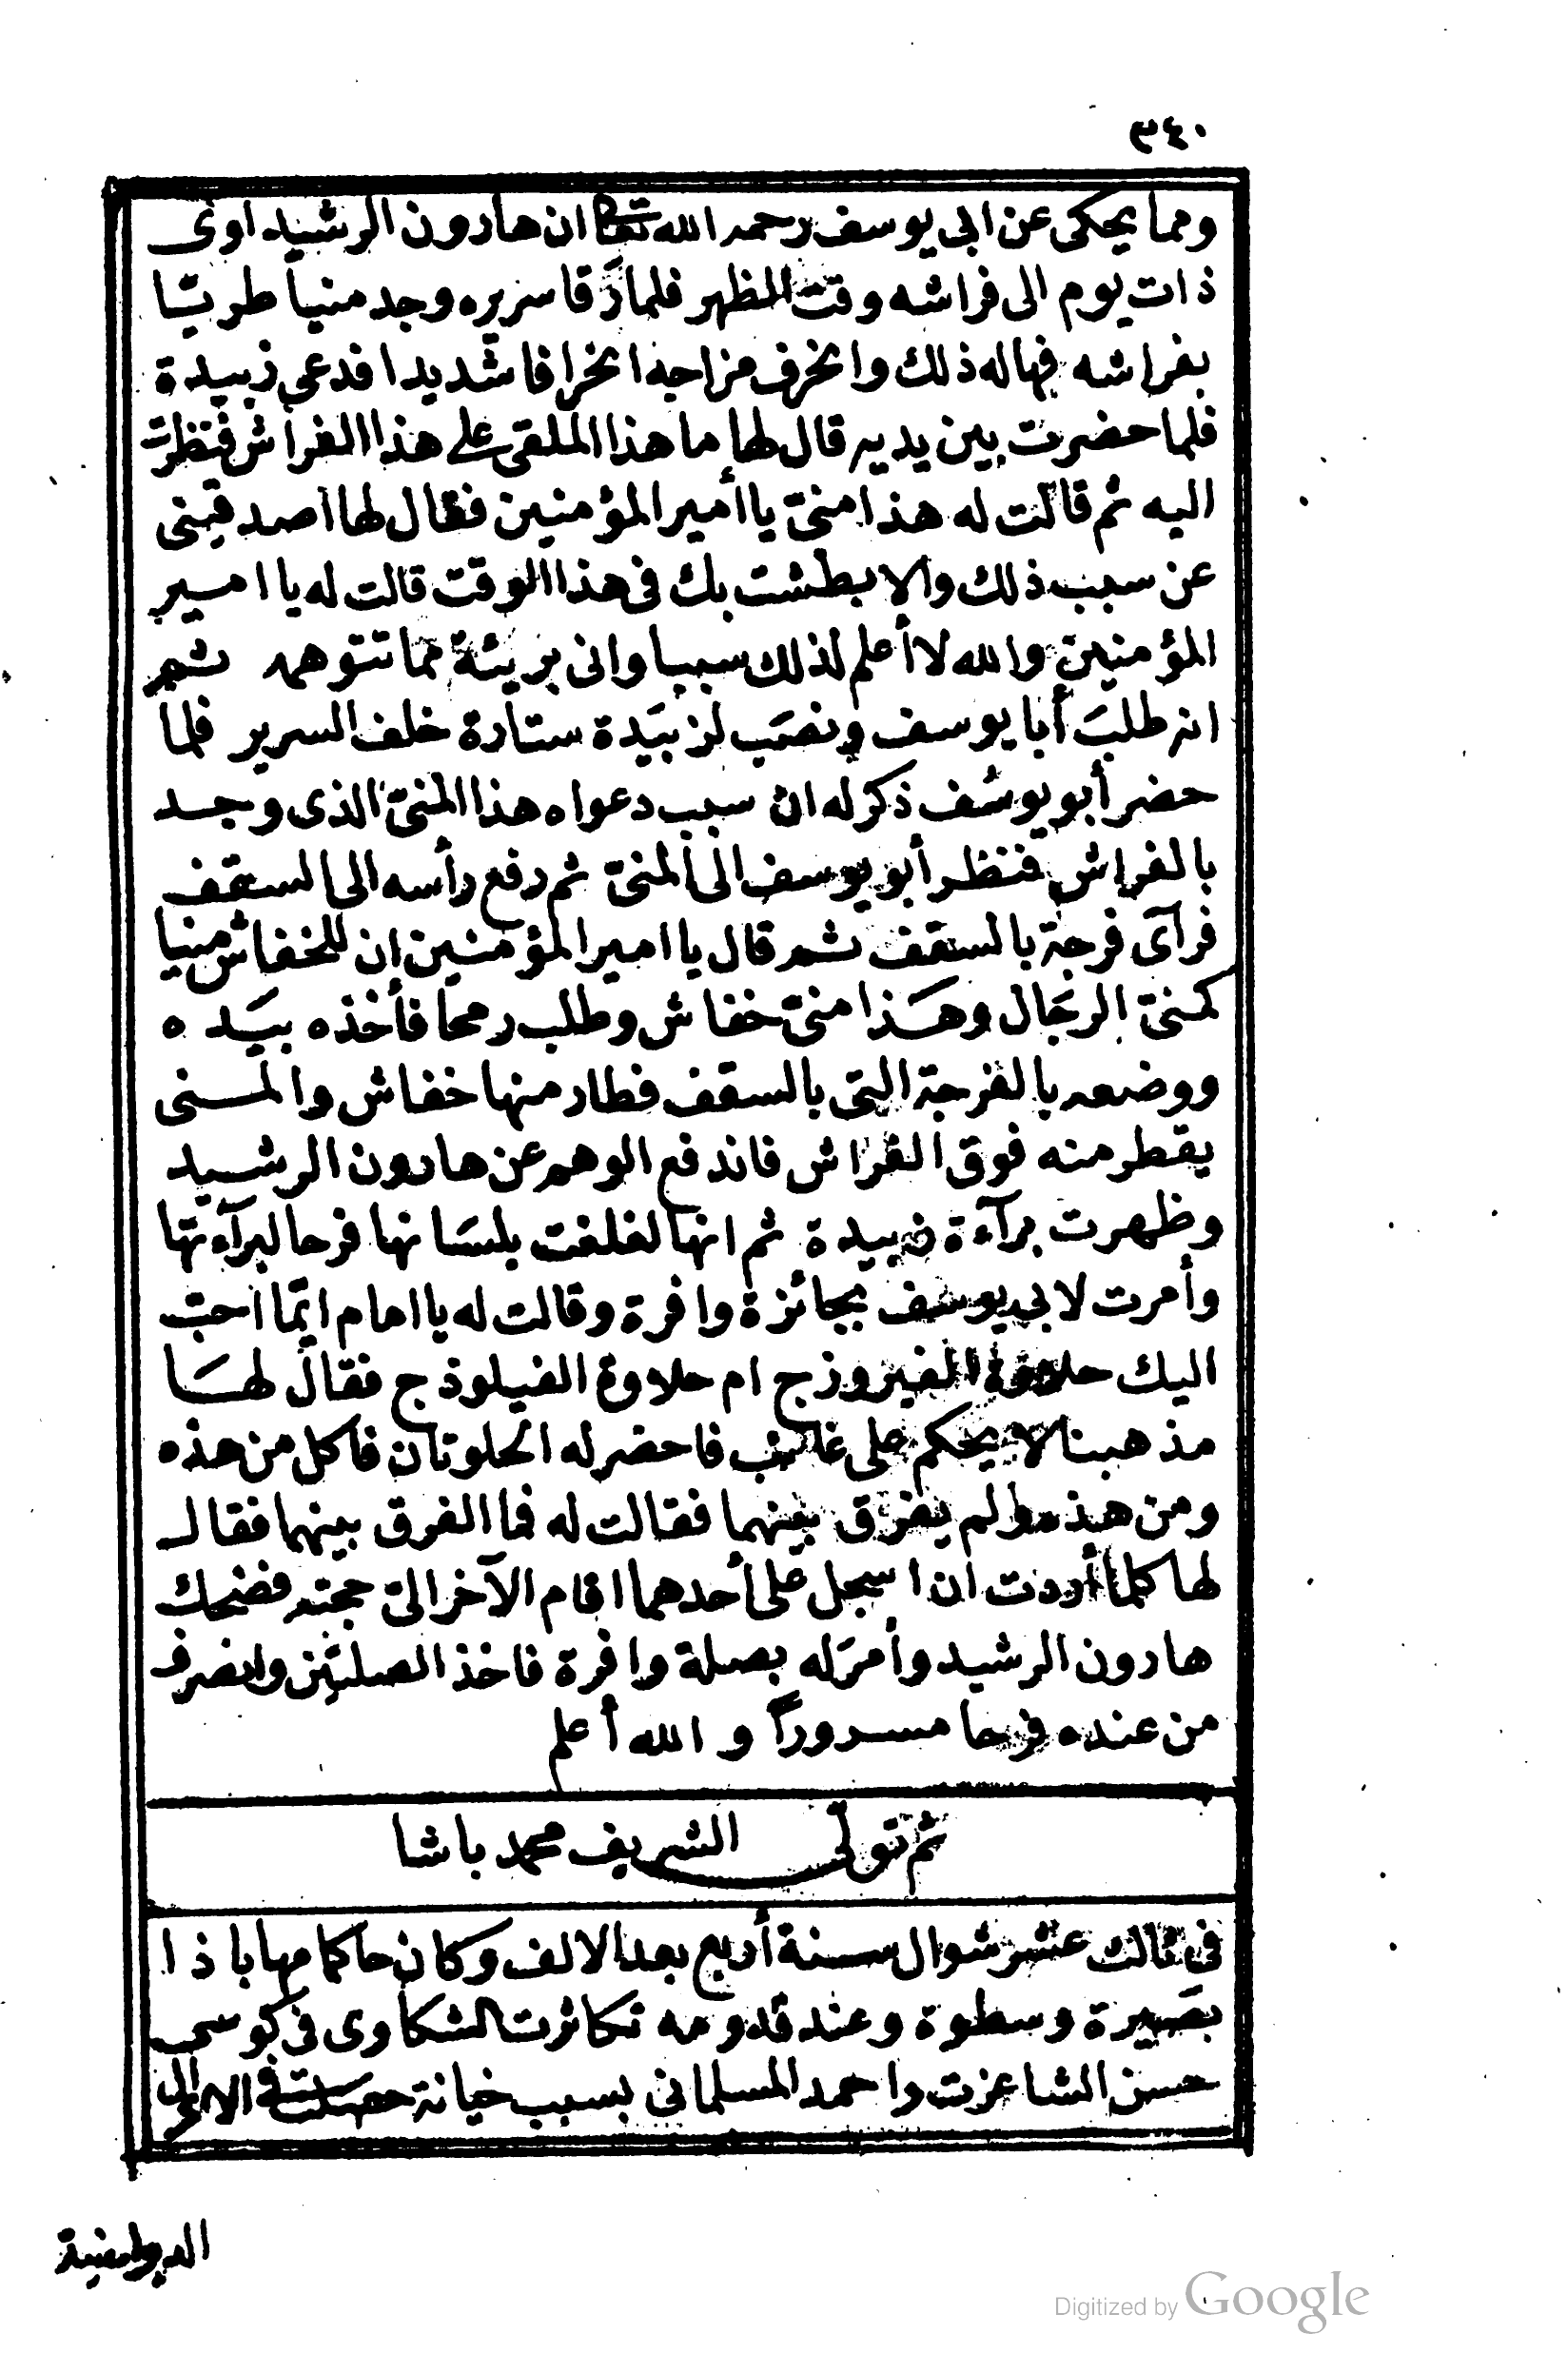 ٣٤٠
ومما يحكى عن ابى يوسف رحمه الله تعالى ان هارون الرشيد اوى
ذات يوم الى فراشه وقت الظهر فلما رقا سريره وجد منيا طريّا
بفراشه فهاله ذلك وانحرف مزاجه انحرافا شديدا فدعى زبيدة
فلما حضرت بين يديه قال لها ما هذا الملقى على هذا الفراش فنظرت
اليه ثم قالت له هذا منىّ يا أمير المؤمنين فقال لها اصدقينى
عن سبب ذلك والا بطشت بك فى هذا الوقت قالت له يا امير
المؤمنين والله لا أعلم لذلك سببا وانى بريئة مما تتوهمه ثم
انه طلب أبا يوسف ونصب لزبيدة ستارة خلف السرير فلما
حضر أبو يوسف ذكر له ان سبب دعواه هذا المنىّ الذى وجد
بالفراش فنظر أبو يوسف الى المنىّ ثم رفع رأسه الى السقف
فرآى فرجة بالسقف ثم قال يا امير المؤمنين ان للخفاش منيا
كمنىّ الرجال وهذا منىّ خفاش وطلب رمحا فأخذه بيده
ووضعه بالفرجة التى بالسقف فطار منها خفاش والمنى
يقطر منه فوق الفراش فاندفع الوهم عن هارون الرشيد
وظهرت برآءة زبيدة ثم انها لغلغت بلسانها فرحا لبرآءتها
وأمرت لابى يوسف بجائزة وافرة وقالت له يا امام ايّما احبّ
اليك حلاوة الفيروزج ام حلاوة الفيلوذج فقال لها
مذهبنا لا يحكم على غائب فاحضر له الحلوتان فاكل من هذه
ومن هذه ولم يفرّق بينهما فقالت له فما الفرق بينهما فقال
لها كلما أردت ان اسجل على أحدهما اقام الآخر الىّ حجته فضحك
هارون الرشيد وأمر له بصلة وافرة فاخذ الصلتين وانصرف
من عنده فرحا مسروراً و الله أعلم
ثم تولى الشريف محمد باشا
فى ثالث عشر شوال سنة أربع بعد الالف وكان حاكما مهابا ذا
بصيرة وسطوة وعند قدومه تكاثرت الشكاوى فى كوسى
حسن الشاعزت واحمد المسلمانى بسبب خيانة حصلت فى الاموال
الديوانية
Digitized by Google